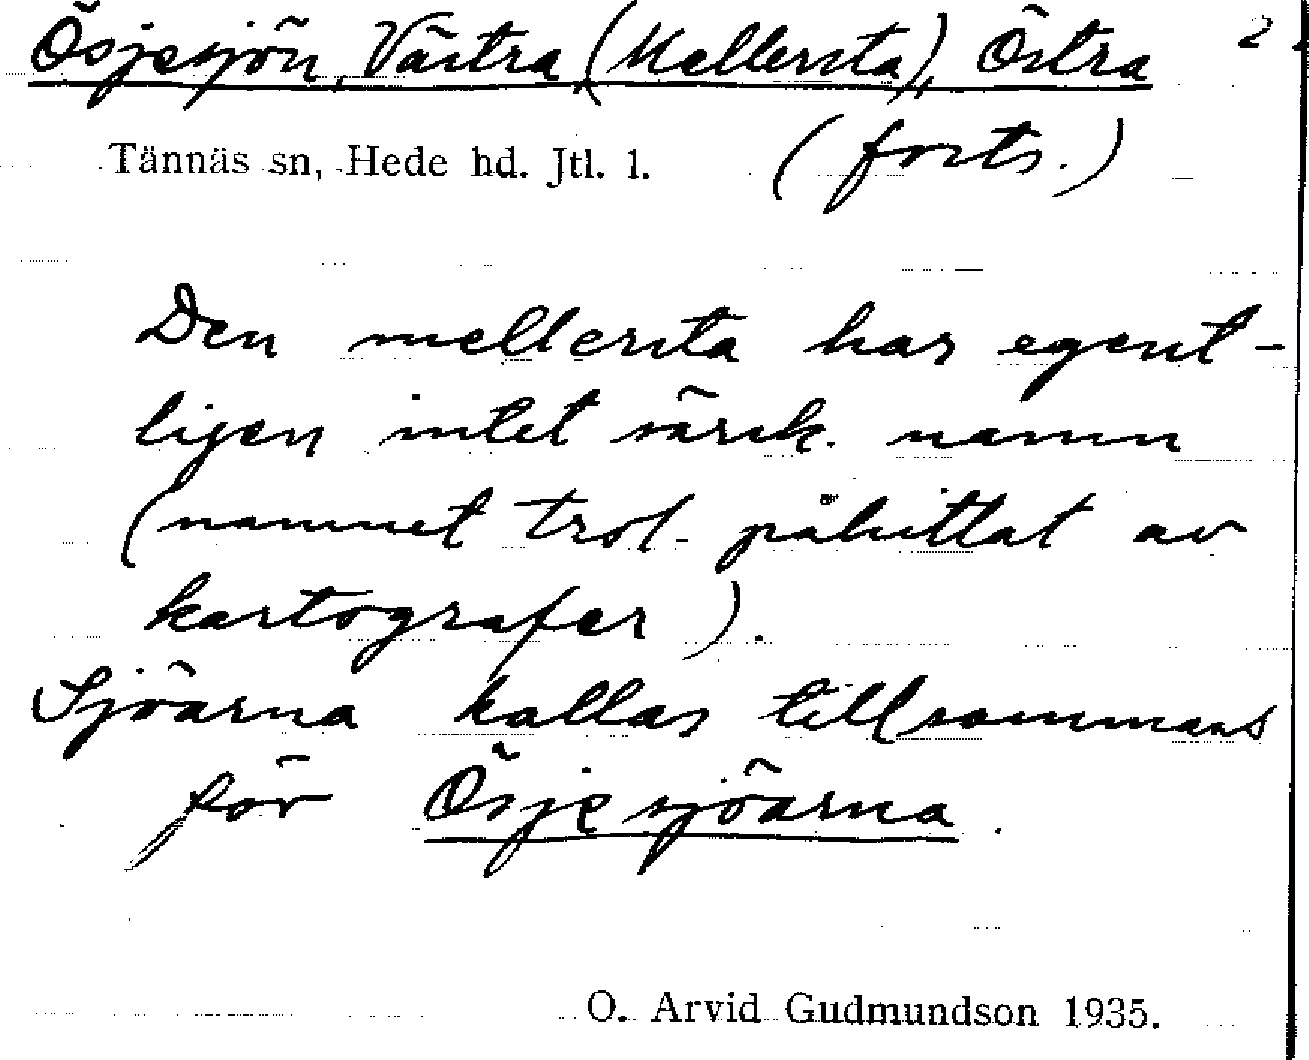 Ösjesjön, Västra, (Mellersta), Östra 2.
Tännäs sn, Hede hd. Jtl. l. (forts.)
Den mellersta har egent-
ligen intet särsk. namn
(namnet trol. påhittat av
kartografer).
Sjöarna kallas tillsammans
för Ösjesjöarna.
O. Arvid Gudmundson 1935.